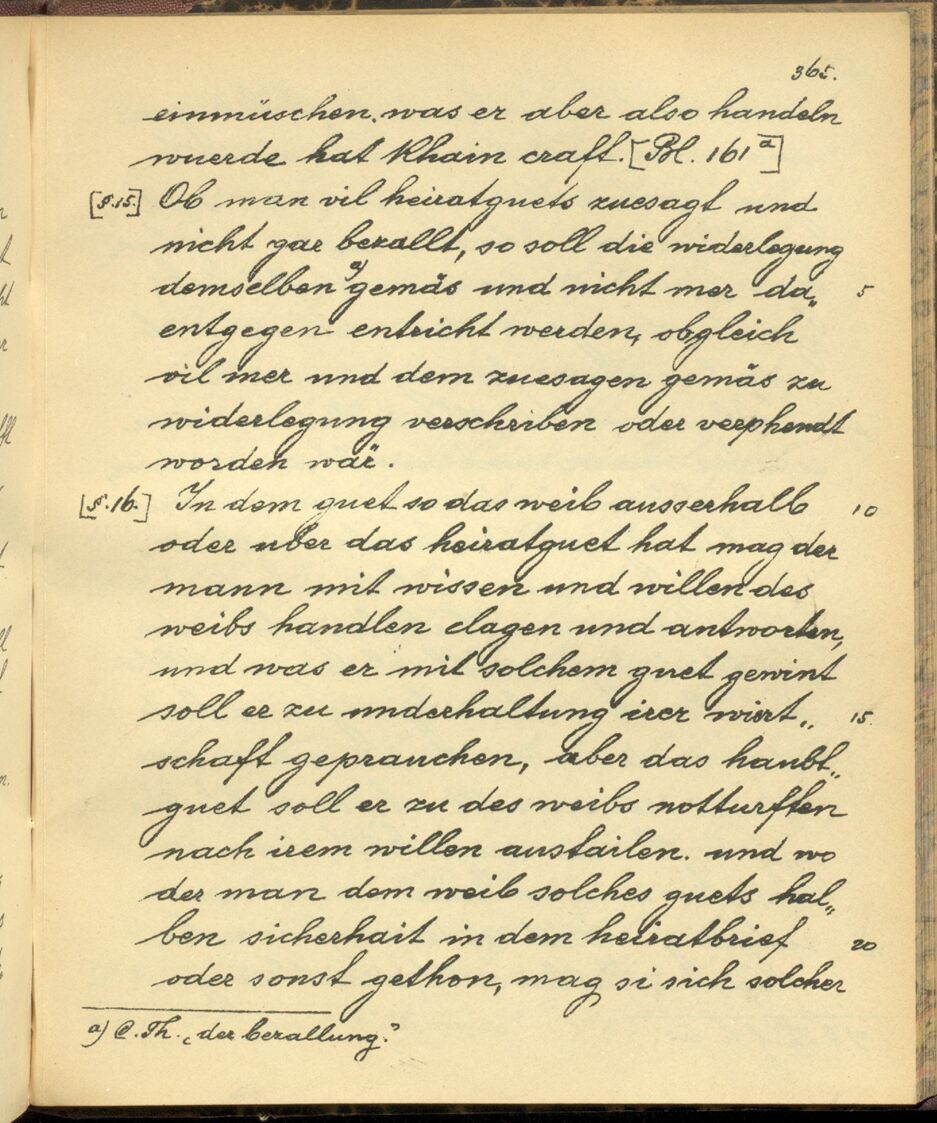 365.
einmüschen. was er aber also handeln
wuerde hat khain craft. [Bl. 161a]
[§.15.] Ob man vil heiratguets zuesagt und
nicht gar bezallt, so soll die widerlegung
demselben a) gemäs und nicht mer da„ 5
entgegen entricht werden, obgleich
vil mer und dem zuesagen gemäs zu
widerlegung verschriben oder verphendt
worden wär.
[§.16.] In dem guet so das weib ausserhalb 10
oder uber das heiratguet hat mag der
mann mit wissen und willen des
weibs handlen clagen und antworten,
und was er mit solchem guet gewint
soll er zu underhaltung irer wirt„ 15.
schaft geprauchen, aber das haubt„
guet soll er zu des weibs notturften
nach irem willen austailen. und wo
der man dem weib solches guets hal„
ben sicherhait in dem heiratbrief 20
oder sonst gethon, mag si sich solcher
a) C. Th. „der bezallung."